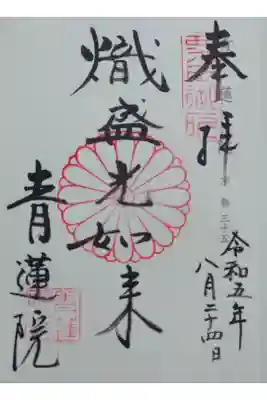 奉拝
令和五年
八月二十四日
熾盛光如来
青蓮院